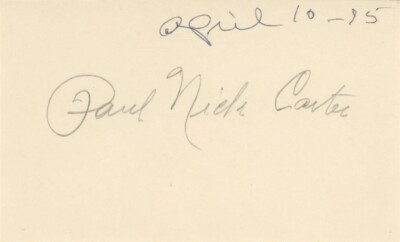 April 10-75
Paul Nick Carter